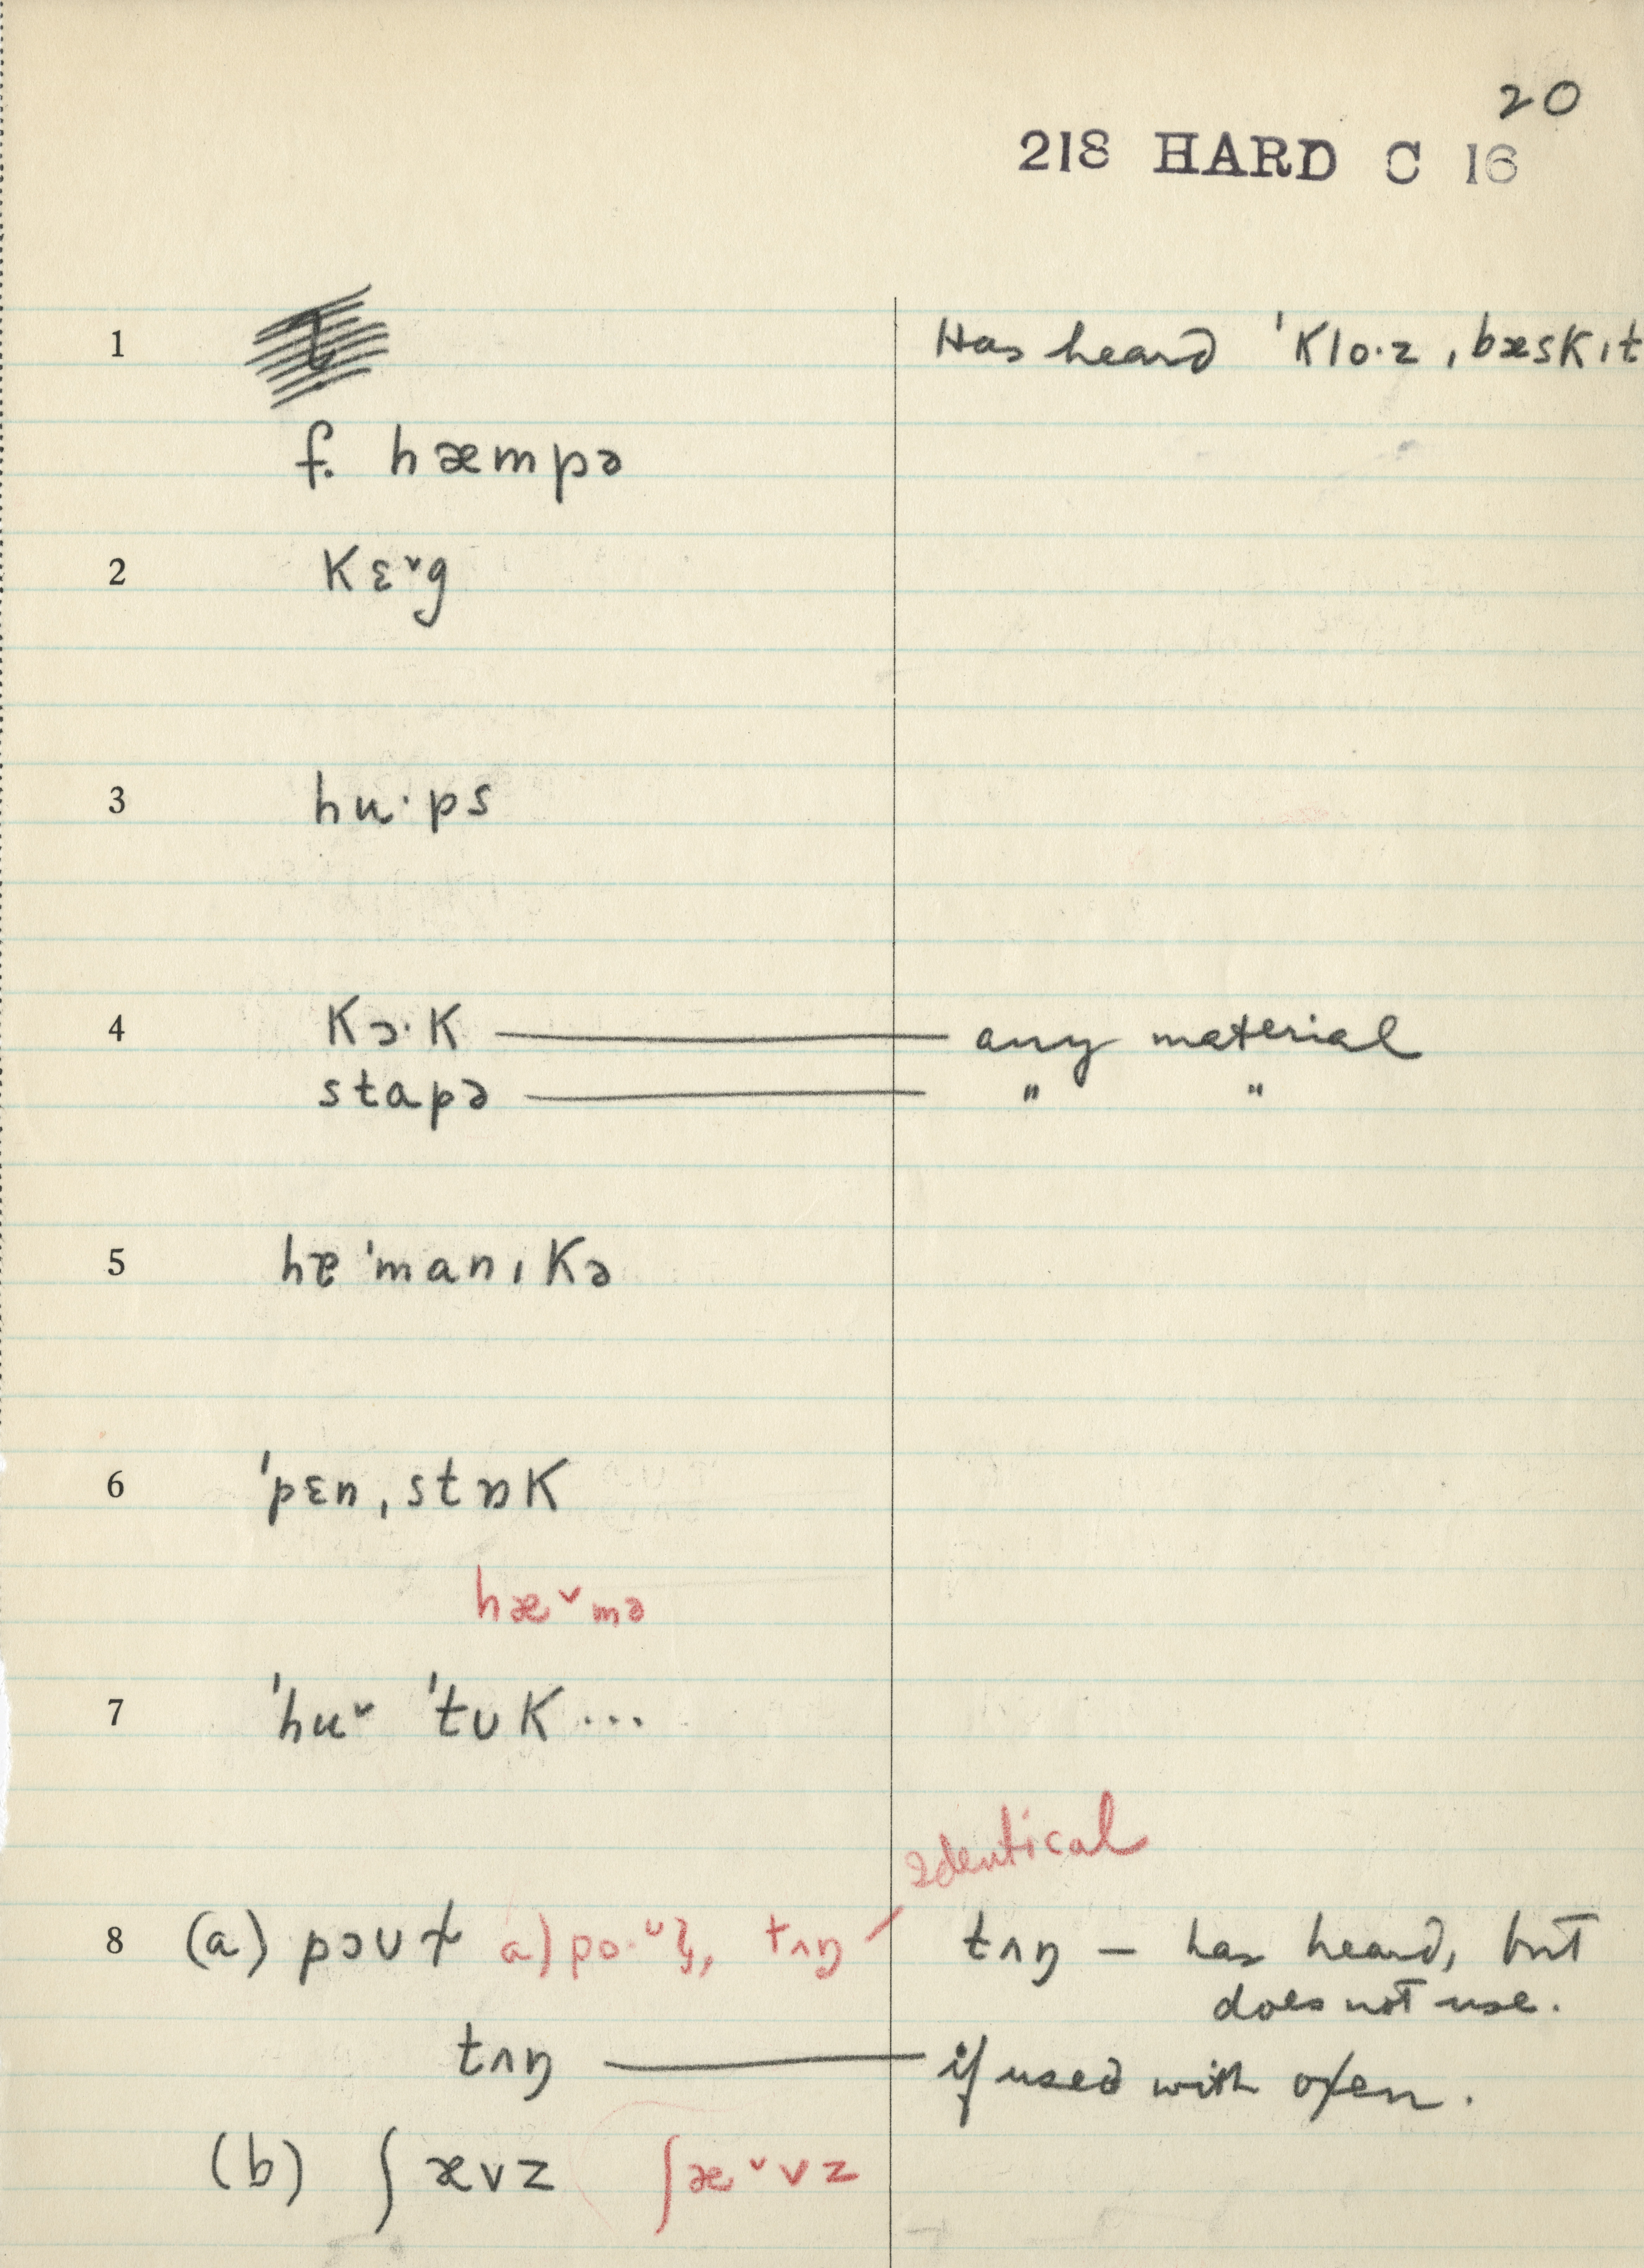 20
218 HARD C 16
1 Has heard ˈklo·z ˌbæskɪt
f. hæmpə
2 kɛ˅g
3 hu·ps
4 kɔ·k — any material
stapə — " "
5 hɐˈmanɪkə
6 ˈpɛnˌstɒk
hæ˅mə
7 ˈhu˅ ˈtʊk ...
Identical
8 (a) pɔʊɫ a) tʌŋ tʌŋ – has heard, but
does not use.
tʌŋ — if used with oxen.
(b) ʃævz ʃæ˅vz